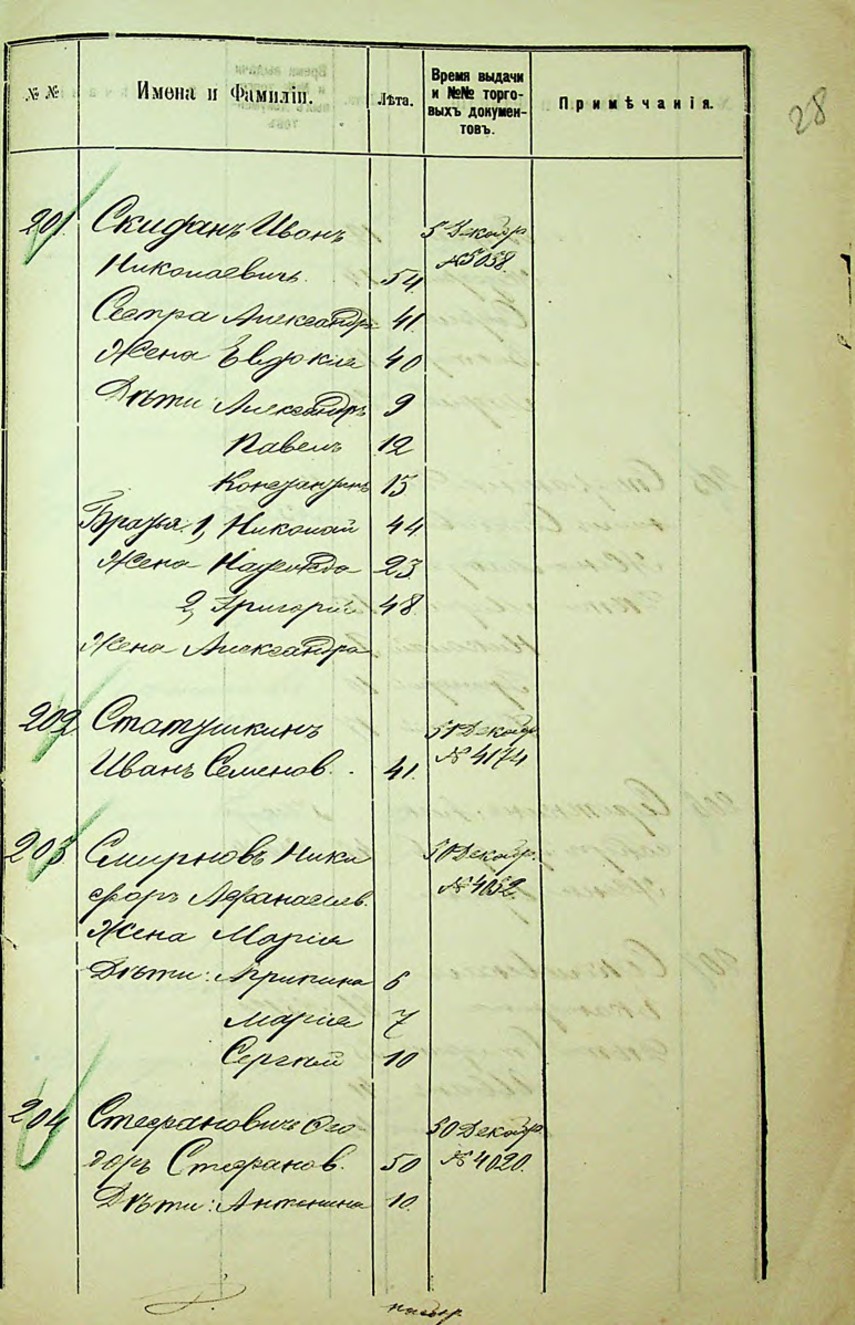 28
№ №
Имена и Фамиліи.
Лѣта.
Время выдачи
и №№ торго-
выхъ докумен-
товъ.
Примѣчанія.
201. Скиданъ Иванъ 5 Декабр
Николаевичъ. 54 №5058.
Сестра Александр 41
Жена Евдокия 40
Дѣти: Александръ 9
Павелъ 12
Константинъ 15
Братья. 1, Николай 44
Жена Надежда 23
2, Григорій 48.
Жена Александра
202 Статушкинъ 31 Декабр
Иванъ Семенов. 41. № 4174
203 Смирновъ Ники 30 Декабр.
форъ Афанасьев. № 4052.
Жена Мария
Дѣти: Агрипина 6
Мария 7
Сергѣй 10
204 Стефановичъ Фео 30 Декабр.
доръ Стефанов. 50 № 4020.
Дѣти: Антонина 10.